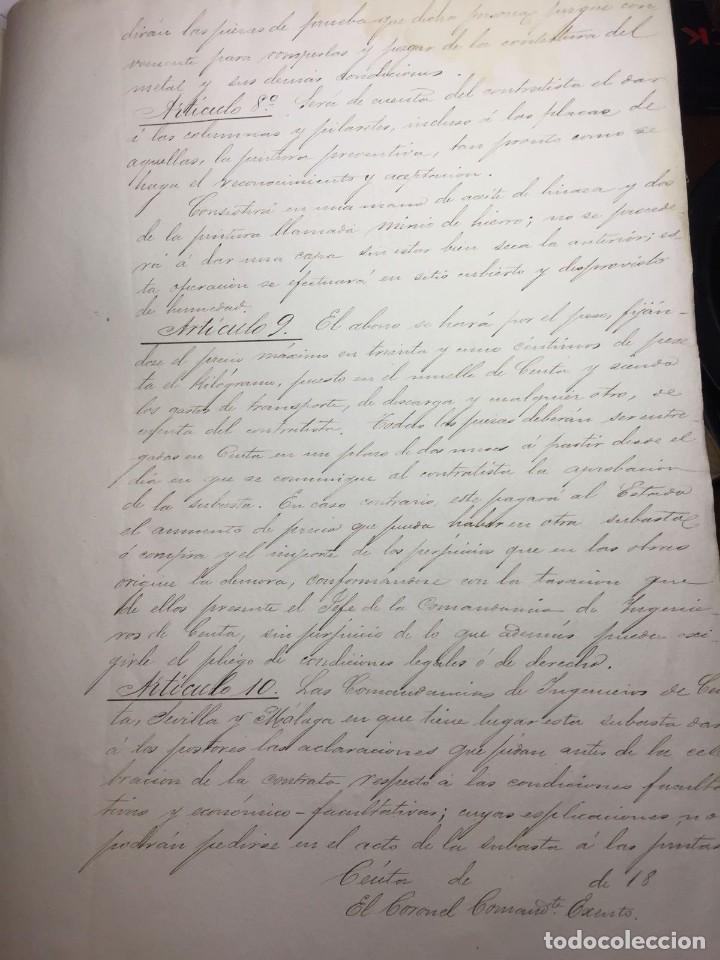 dirán las piezas de prueba que dicho marca juzgue con
veniente para romperlas y juzgar de la contextura del
metal y sus demás condiciones.
Artículo 8º. Será de cuenta del contratista el dar
á las columnas y pilarotes, incluso á las placas de
aquellas, la pintura preventiva, tan pronto como se
haya el reconocimiento y aceptación.
Consistirá en una mano de aceite de linaza y dos
de la pintura llamada minio de hierro; no se procede-
rá á dar una capa sin estar bien seca la anterior; es-
ta operación se efectuará en sitio cubierto y desprovisto
de humedad.
Artículo 9. El abono se hará por el peso, fiján-
dose el precio máximo en treinta y cinco céntimos de pese-
ta el kilógramo, puesto en el muelle de Ceuta y siendo
los gastos de transporte, de descarga y cualquier otro, de
cuenta del contratista. Todas las piezas deberán ser entre-
gadas en Ceuta en un plazo de dos meses á partir desde el
dia en que se comunique al contratista la aprobación
de la subasta. En caso contrario, este pagará al Estado
el aumento de precio que pueda haber en otra subasta
ó compra y el importe de los perjuicios que en las obras
origine la demora, conformándose con la tasación que
de ellos presente el Jefe de la Comandancia de Ingenie-
ros de Ceuta, sin perjuicio de lo que además pueda exi-
girle el pliego de condiciones legales ó de derecho.
Artículo 10. Las Comandancias de Ingenieros de Ceu
ta, Sevilla y Málaga en que tiene lugar esta subasta dar
á los postores las aclaraciones que pidan antes de la cele
bracion de la contrata respecto á las condiciones faculta
tivas y económico-facultativas; cuyas esplicaciones no
podrán pedirse en el acto de la subasta á las juntas
Ceuta de de 18
El Coronel Comandte. Exento.
todocoleccion
todocoleccion.net